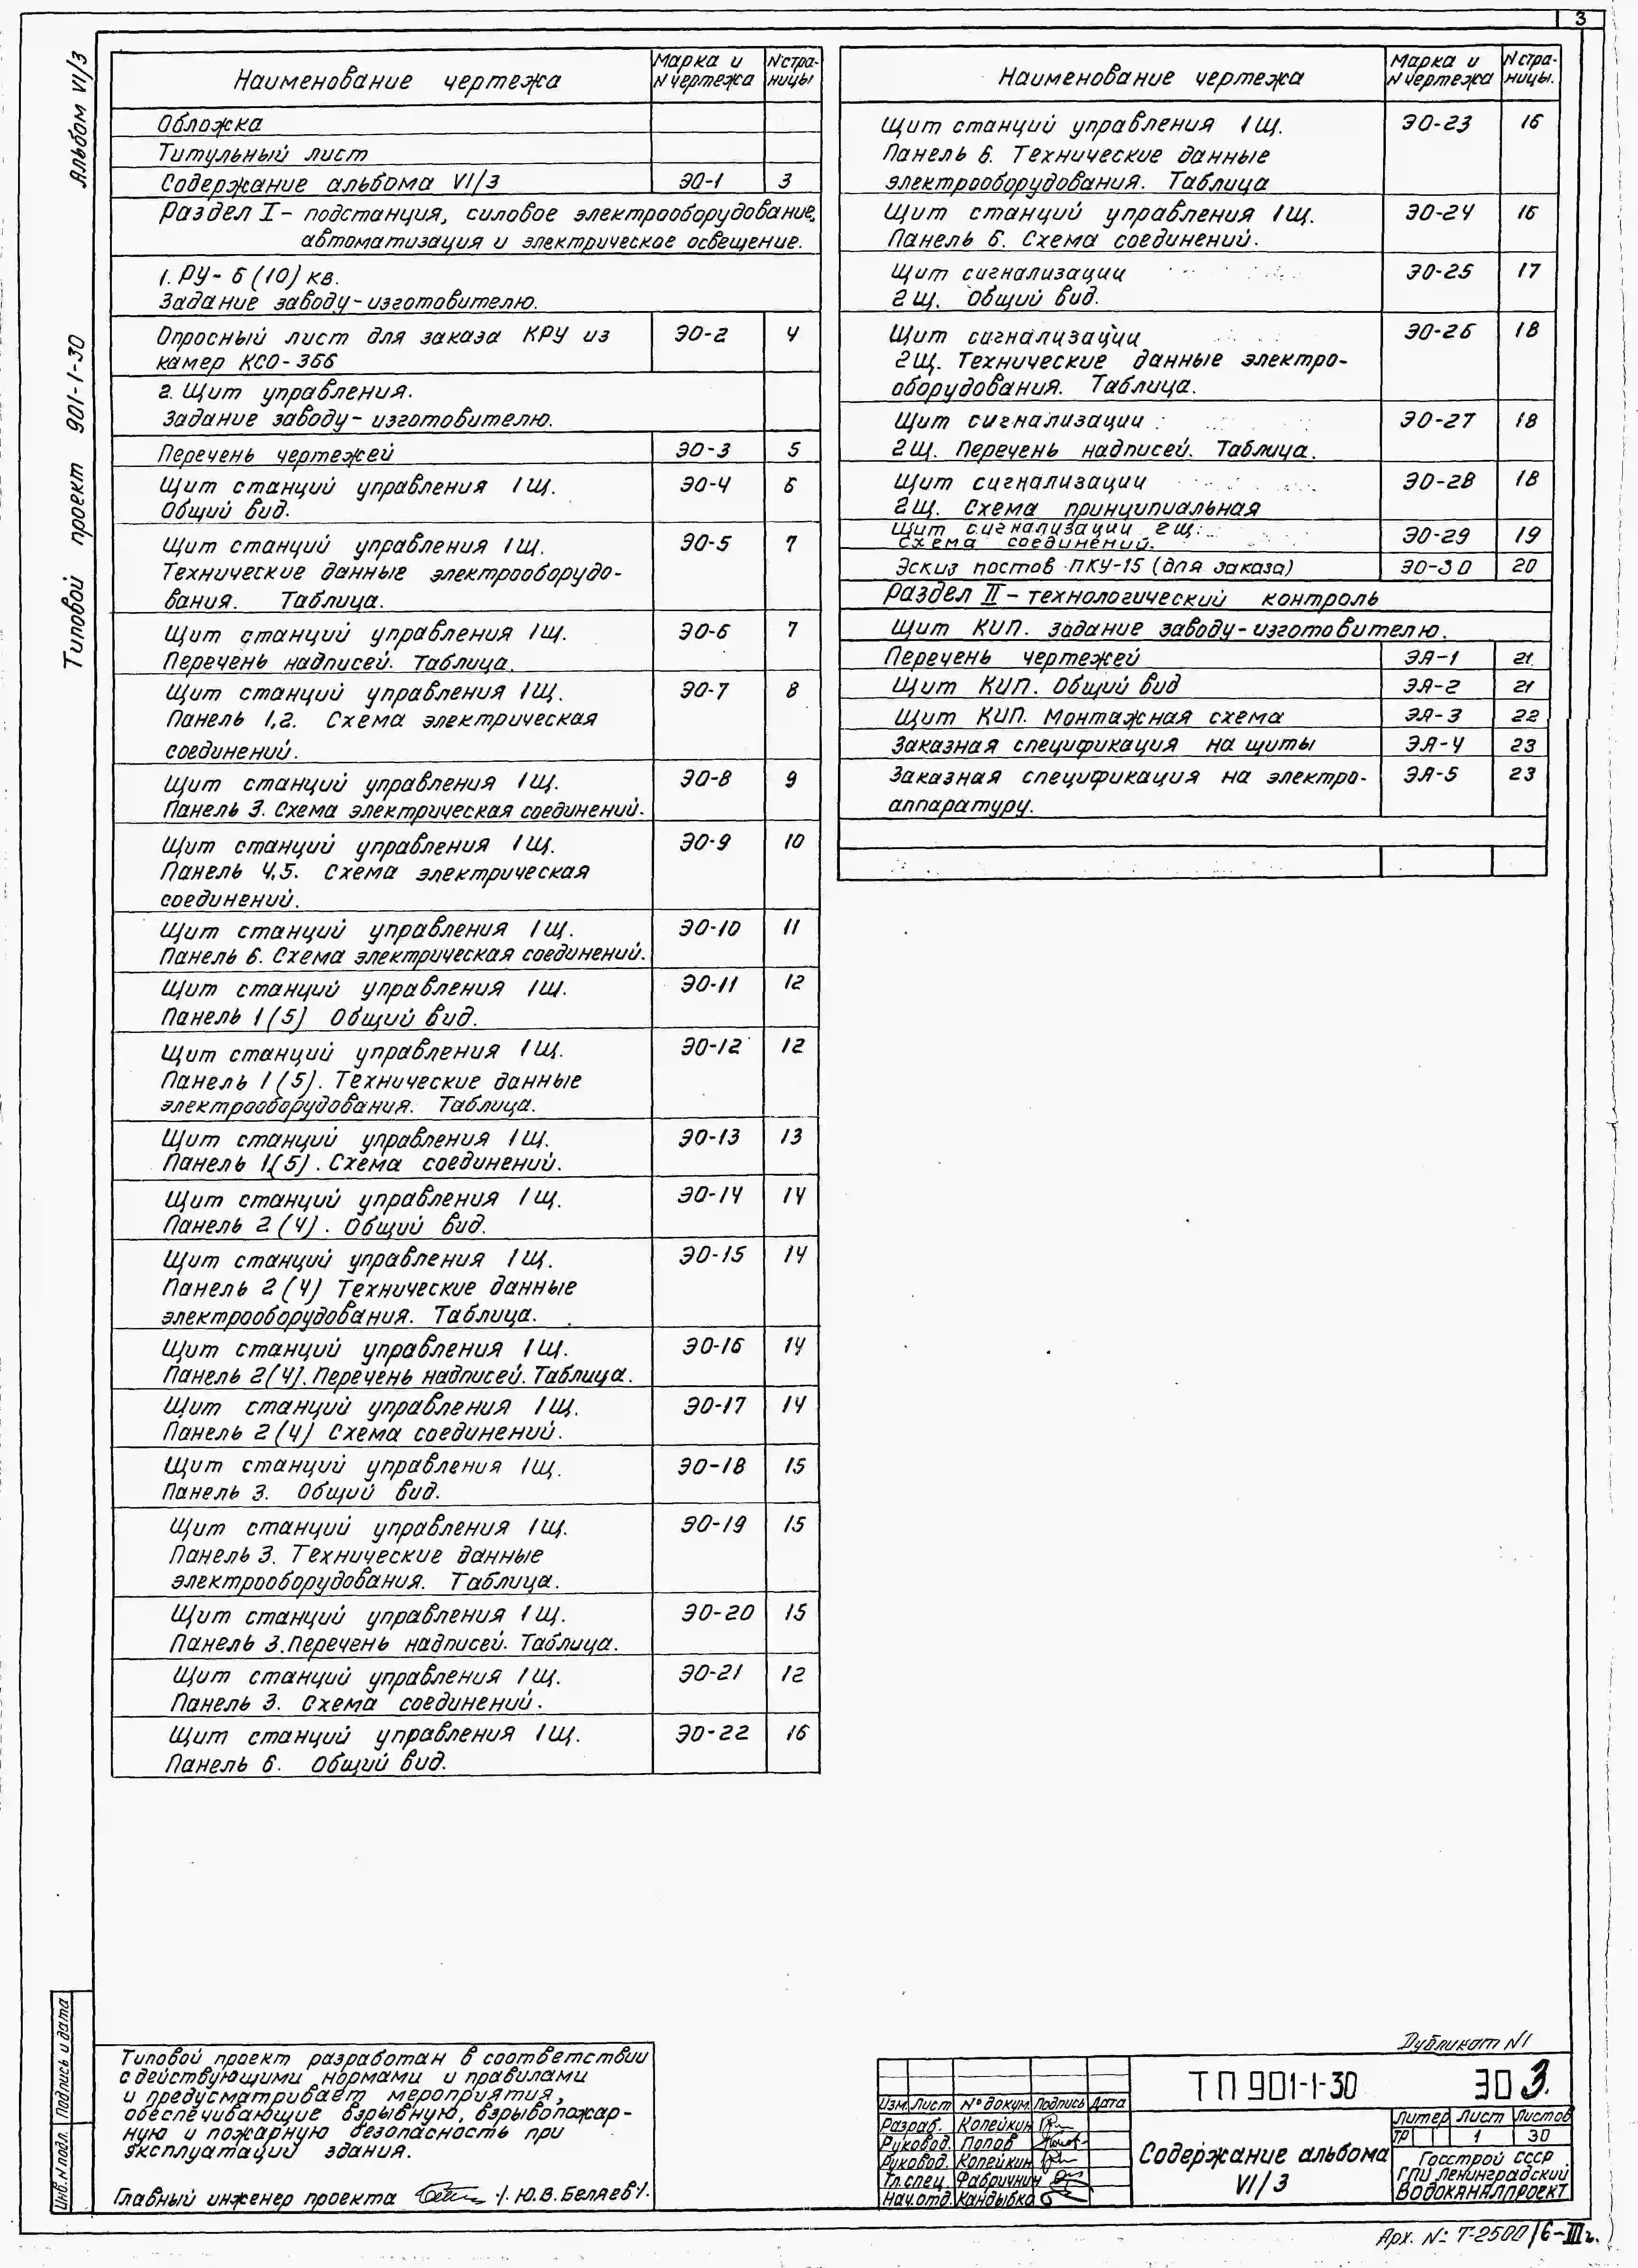 3
Альбом VI/3
Типовой проект 901-1-30
Наименование чертежа Марка и N чертежа N стра-ницы
Обложка
Титульный лист
Содержание альбома VI/3 ЭО-1 3
Раздел I - подстанция, силовое электрооборудование,
автоматизация и электрическое освещение.
1. РУ- 6 (10) кв.
Задание заводу-изготовителю.
Опросный лист для заказа КРУ из ЭО-2 4
камер КСО-366
2. Щит управления.
Задание заводу-изготовителю.
Перечень чертежей ЭО-3 5
Щит станций управления 1Щ. ЭО-4 6
Общий вид.
Щит станций управления 1Щ. ЭО-5 7
Технические данные электрооборудо-
вания. Таблица.
Щит станций управления 1Щ. ЭО-6 7
Перечень надписей. Таблица.
Щит станций управления 1Щ. ЭО-7 8
Панель 1,2. Схема электрическая
соединений.
Щит станций управления 1Щ. ЭО-8 9
Панель 3. Схема электрическая соединений.
Щит станций управления 1Щ. ЭО-9 10
Панель 4,5. Схема электрическая
соединений.
Щит станций управления 1Щ. ЭО-10 11
Панель 6. Схема электрическая соединений.
Щит станций управления 1Щ. ЭО-11 12
Панель 1(5) Общий вид.
Щит станций управления 1Щ. ЭО-12 12
Панель 1(5). Технические данные
электрооборудования. Таблица.
Щит станций управления 1Щ. ЭО-13 13
Панель 1(5). Схема соединений.
Щит станций управления 1Щ. ЭО-14 14
Панель 2(4). Общий вид.
Щит станций управления 1Щ. ЭО-15 14
Панель 2(4) Технические данные
электрооборудования. Таблица.
Щит станций управления 1Щ. ЭО-16 14
Панель 2(4). Перечень надписей. Таблица.
Щит станций управления 1Щ. ЭО-17 14
Панель 2(4) Схема соединений.
Щит станций управления 1Щ. ЭО-18 15
Панель 3. Общий вид.
Щит станций управления 1Щ. ЭО-19 15
Панель 3. Технические данные
электрооборудования. Таблица.
Щит станций управления 1Щ. ЭО-20 15
Панель 3. Перечень надписей. Таблица.
Щит станций управления 1Щ. ЭО-21 12
Панель 3. Схема соединений.
Щит станций управления 1Щ. ЭО-22 16
Панель 6. Общий вид.
Наименование чертежа Марка и N чертежа N стра-ницы.
Щит станций управления 1Щ. ЭО-23 16
Панель 6. Технические данные
электрооборудования. Таблица
Щит станций управления 1Щ. ЭО-24 16
Панель 6. Схема соединений.
Щит сигнализации ЭО-25 17
2Щ. Общий вид.
Щит сигнализации ЭО-26 18
2Щ. Технические данные электро-
оборудования. Таблица.
Щит сигнализации ЭО-27 18
2Щ. Перечень надписей. Таблица.
Щит сигнализации ЭО-28 18
2Щ. Схема принципиальная
Щит сигнализации 2Щ. ЭО-29 19
Схема соединений.
Эскиз постов ПКУ-15 (для заказа) ЭО-30 20
Раздел II - технологический контроль
Щит КИП. Задание заводу-изготовителю.
Перечень чертежей ЭА-1 21
Щит КИП. Общий вид ЭА-2 21
Щит КИП. Монтажная схема ЭА-3 22
Заказная спецификация на щиты ЭА-4 23
Заказная спецификация на электро- ЭА-5 23
аппаратуру.
Инв.N подл. Подпись и дата
Типовой проект разработан в соответствии
с действующими нормами и правилами
и предусматривает мероприятия,
обеспечивающие взрывную, взрывопожар-
ную и пожарную безопасность при
эксплуатации здания.
Главный инженер проекта /Ю.В.Беляев/.
Дубликат N1
ТП 901-1-30 ЭО 3.
Изм. Лист N° докум. Подпись Дата
Разраб. Копейкин
Руковод. Попов
Руковод. Копейкин
Гл.спец. Фабричнин
Нач.отд. Кандыбко
Содержание альбома
VI/3
Литер Лист Листов
ТР 1 30
Госстрой СССР
ГПИ Ленинградский
Водоканалпроект
Арх. №: Т-2500/6-III г.